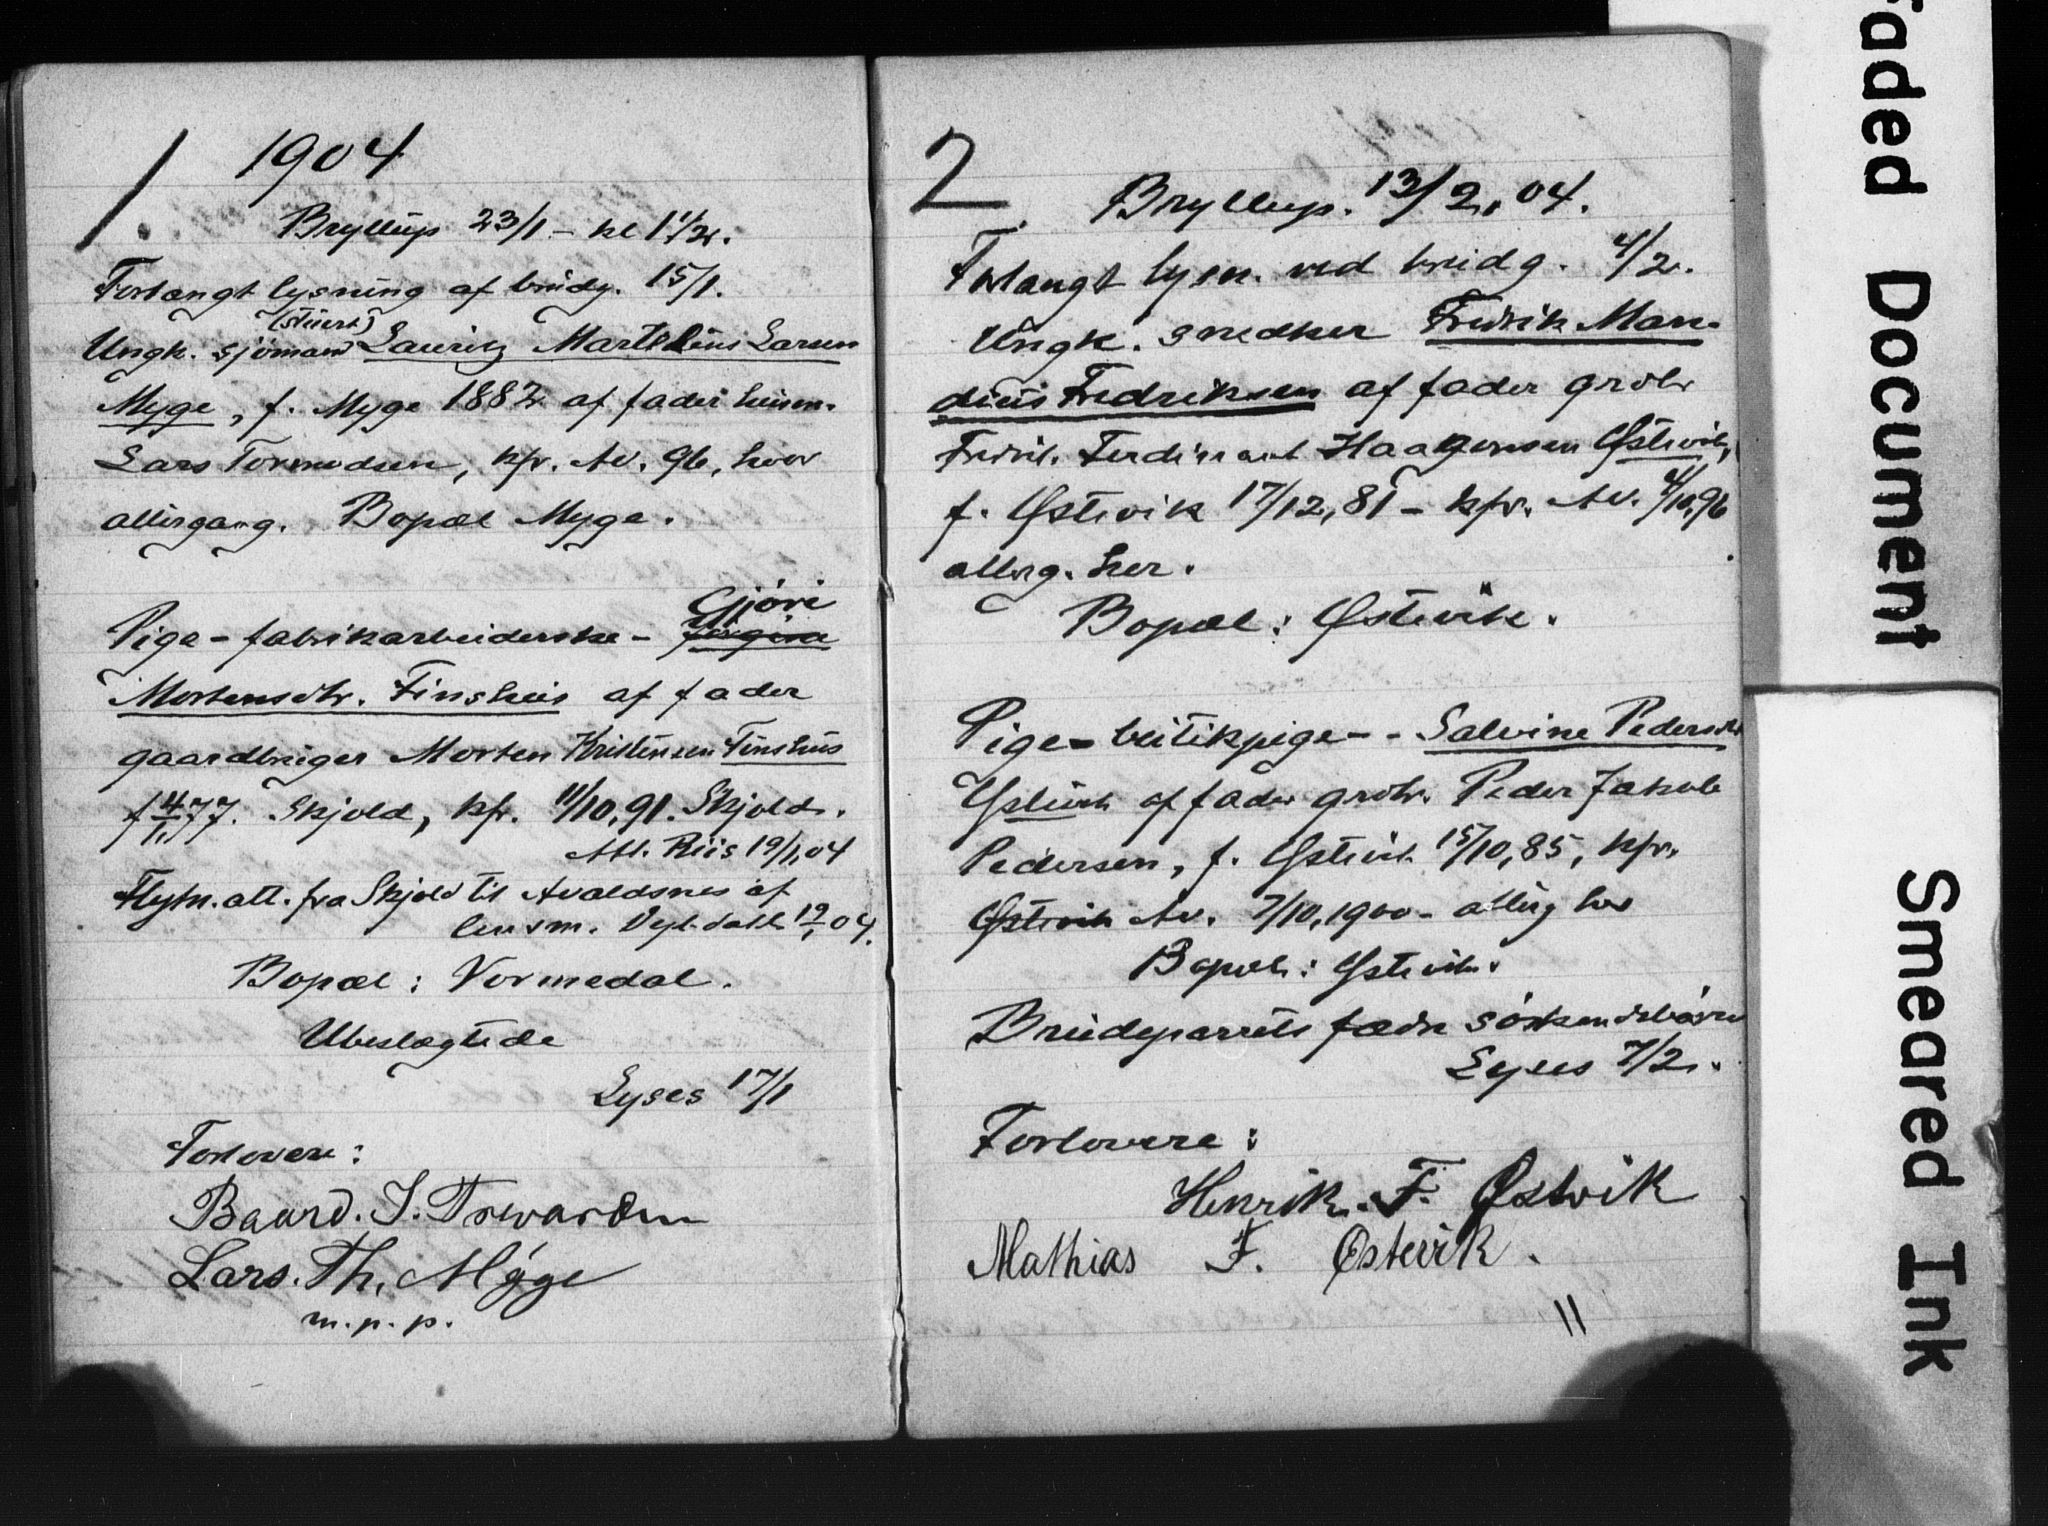 1.
1904
Bryllup 23/1 – kl 1 1/2.
Forlangt lysning af brudg. 15/1.
(stuert)
Ungk. sjömand Lauritz Larsen
Myge, f. Myge 1882 af fader husm.
Lars Tormodsen, kfr. Av. 96, hvor
altergang. Bopæl Myge.
Gjöri
Pige – fabrikarbeiderske –
Mortensdtr. Finshus af fader
gaardbruger Morten Kristensen Finshus
f 4/11 77. Skjold, kfr. 11/10, 91. Skjold.
Att. Riis 19/1, 04
Flytn. att. fra Skjold til Avaldsnes af
lensm. 19/1 04.
Bopæl : Vormedal.
Ubeslægtede
Lyses 17/1
Forlovere :
Baard. I.
Lars. Th. Myge
m. p. p.
2.
Bryllup. 13/2, 04.
Forlangt lysn. ved brudg. 4/2.
Ungk. snedker Fredrik Man-
dius Fredriksen af fader grdbr
Fredrik. Ferdinant Haagensen Østevik,
f. Østevik 17/12, 81 – kfr. Av. 4/10, 96
alterg. her.
Bopæl : Østevik.
Pige – butikpige – - Salvine Pedersdtr
Østevik af fader grdbr. Peder Jakob
Pedersen, f. Østevik 15/10, 85, kfr.
Østevik Av. 7/10, 1900 – alterg her
Bopæl : Østevik.
Brudeparrets fædre söskendebörn
Lyses 7/2.
Forlovere :
Henrik. F. Østvik
Mathias F. Østevik.
11
Faded Document
Smeared Ink